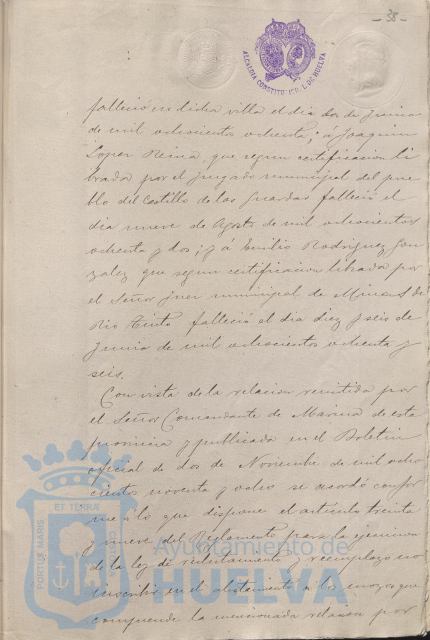 - 38 -
ALCALDIA CONSTITUCIONAL DE HUELVA
falleció en dicha villa el dia dos de Junio
de mil ochocientos ochenta; á Joaquin
Lopez Reina, que segun certificacion li
brada por el Juzgado municipal del pue
blo del Castillo de las Guardas falleció el
dia nueve de Agosto de mil ochocientos
ochenta y dos; y á Emilio Rodriguez Gon
zalez que segun certificacion librada por
el Señor Juez municipal de Minas de
Rio Tinto falleció el dia diez y seis de
Junio de mil ochocientos ochenta y
seis.
Con vista de la relacion remitida por
el Señor Comandante de Marina de esta
provincia y publicada en el Boletin
oficial de dos de Noviembre de mil ocho
cientos noventa y ocho se acordó confor
me a lo que dispone el artículo treinta
y nueve del Reglamento para la ejecucion
de la ley de reclutamiento y reemplazo no
inscribir en el alistamiento a los mozos que
comprende la mencionada relacion por
PORTUS MARIS ET TERRAE
Ayuntamiento de
HUELVA